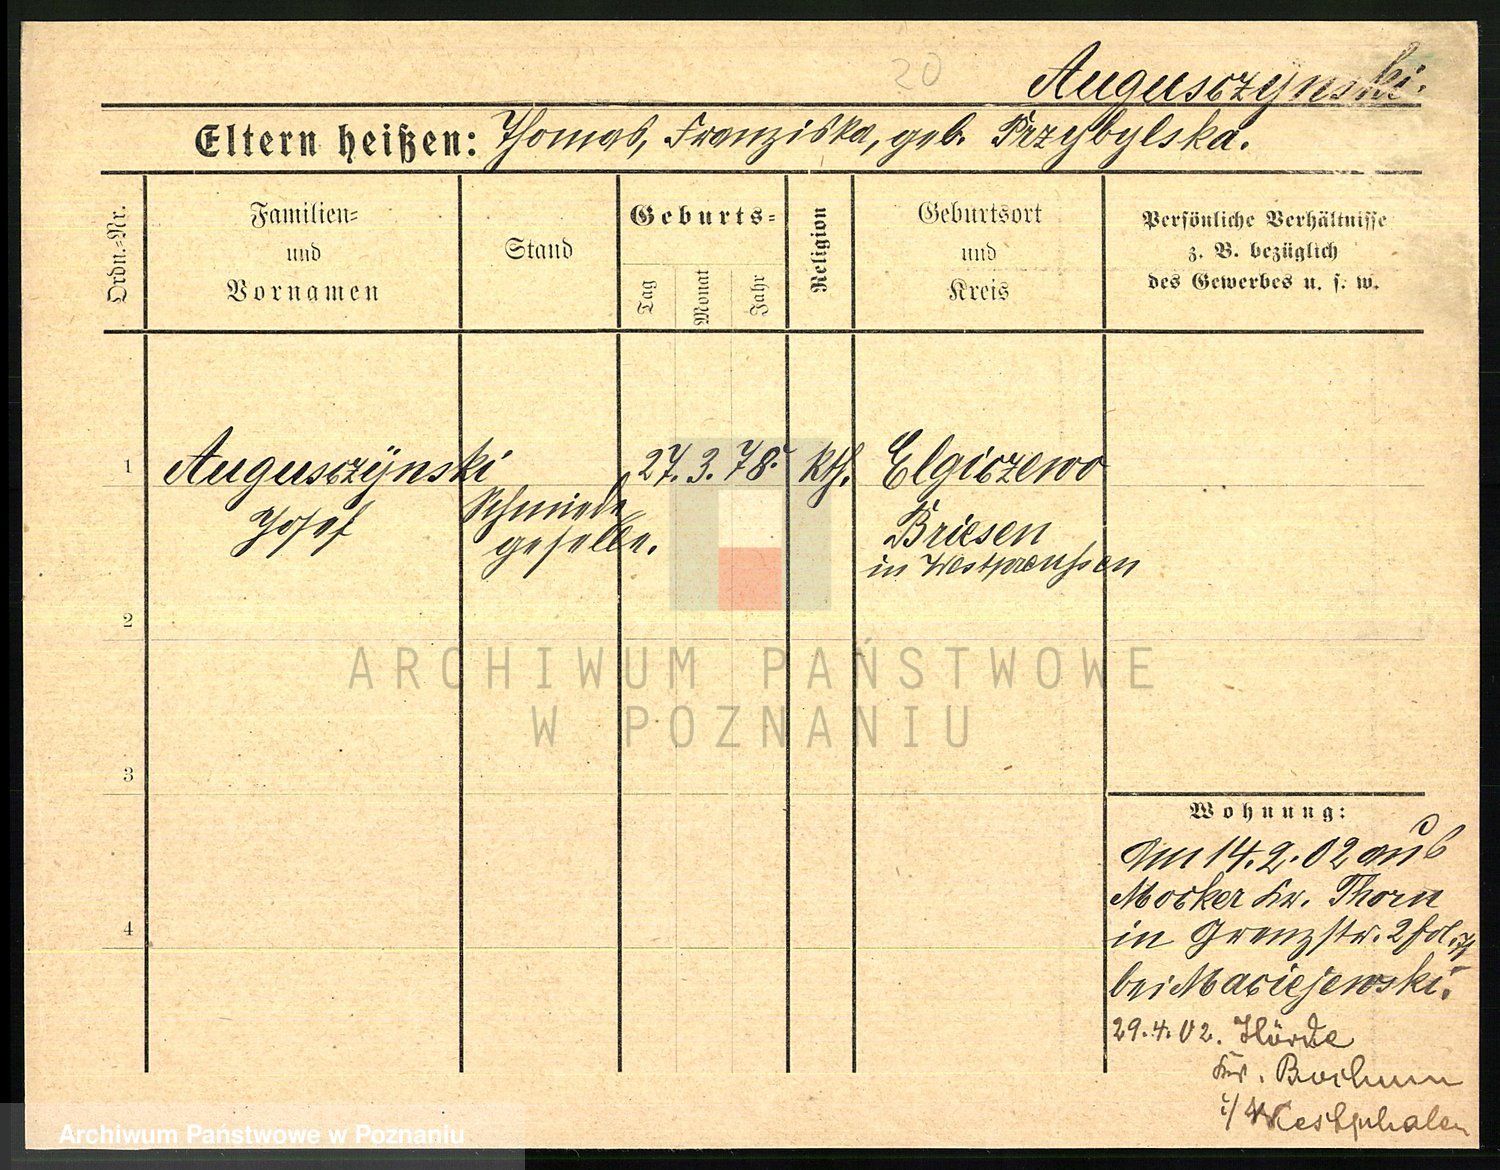 20
Augusczynski.
Eltern heißen: Thomas, Franziska, geb. Przybylska.
Ordn.-Nr.
Familien-
und
Vornamen
Stand
Geburts-
Tag
Monat
Jahr
Religion
Geburtsort
und
Kreis
Persönliche Verhältnisse
z. B. bezüglich
des Gewerbes u. s. w.
1
Augusczÿnski
Josef
Schmiede
geselle.
27. 3. 78.
kth.
Elgiczewo
Briesen
in Westpreußen
2
3
4
ARCHIWUM PAŃSTWOWE
W POZNANIU
Wohnung:
Am 14.2.02 aus
Mocker Kr. Thorn
in Grenzstr. 2
bei Maciejewski.
29.4.02. Hörde
Kr. Bochum
i/ Westphalen
Archiwum Państwowe w Poznaniu